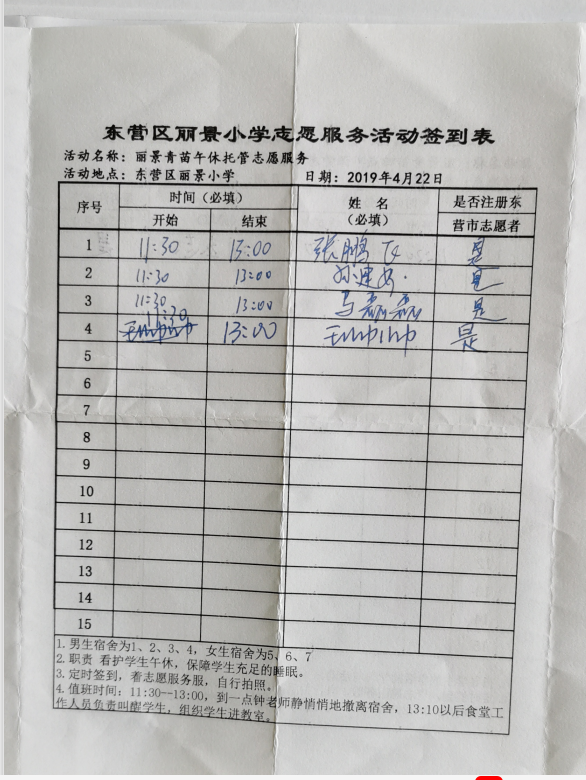 东营区丽景小学志愿服务活动签到表
活动名称：丽景青苗午休托管志愿服务
活动地点：东营区丽景小学 日期：2019年4月22日
序号 时间（必填） 姓名（必填） 是否注册东营市志愿者
开始 结束
1 11:30 13:00 张鹏飞 是
2 11:30 13:00 孙建 是
3 11:30 13:00 马磊磊 是
4 11:30 13:00 王帅帅 是
5
6
7
8
9
10
11
12
13
14
15
1. 男生宿舍为1、2、3、4，女生宿舍为5、6、7
2. 职责 看护学生午休，保障学生充足的睡眠。
3. 定时签到，着志愿服务服，自行拍照。
4. 值班时间：11:30--13:00，到一点钟老师静悄悄地撤离宿舍，13:10以后食堂工
作人员负责叫醒学生，组织学生进教室。